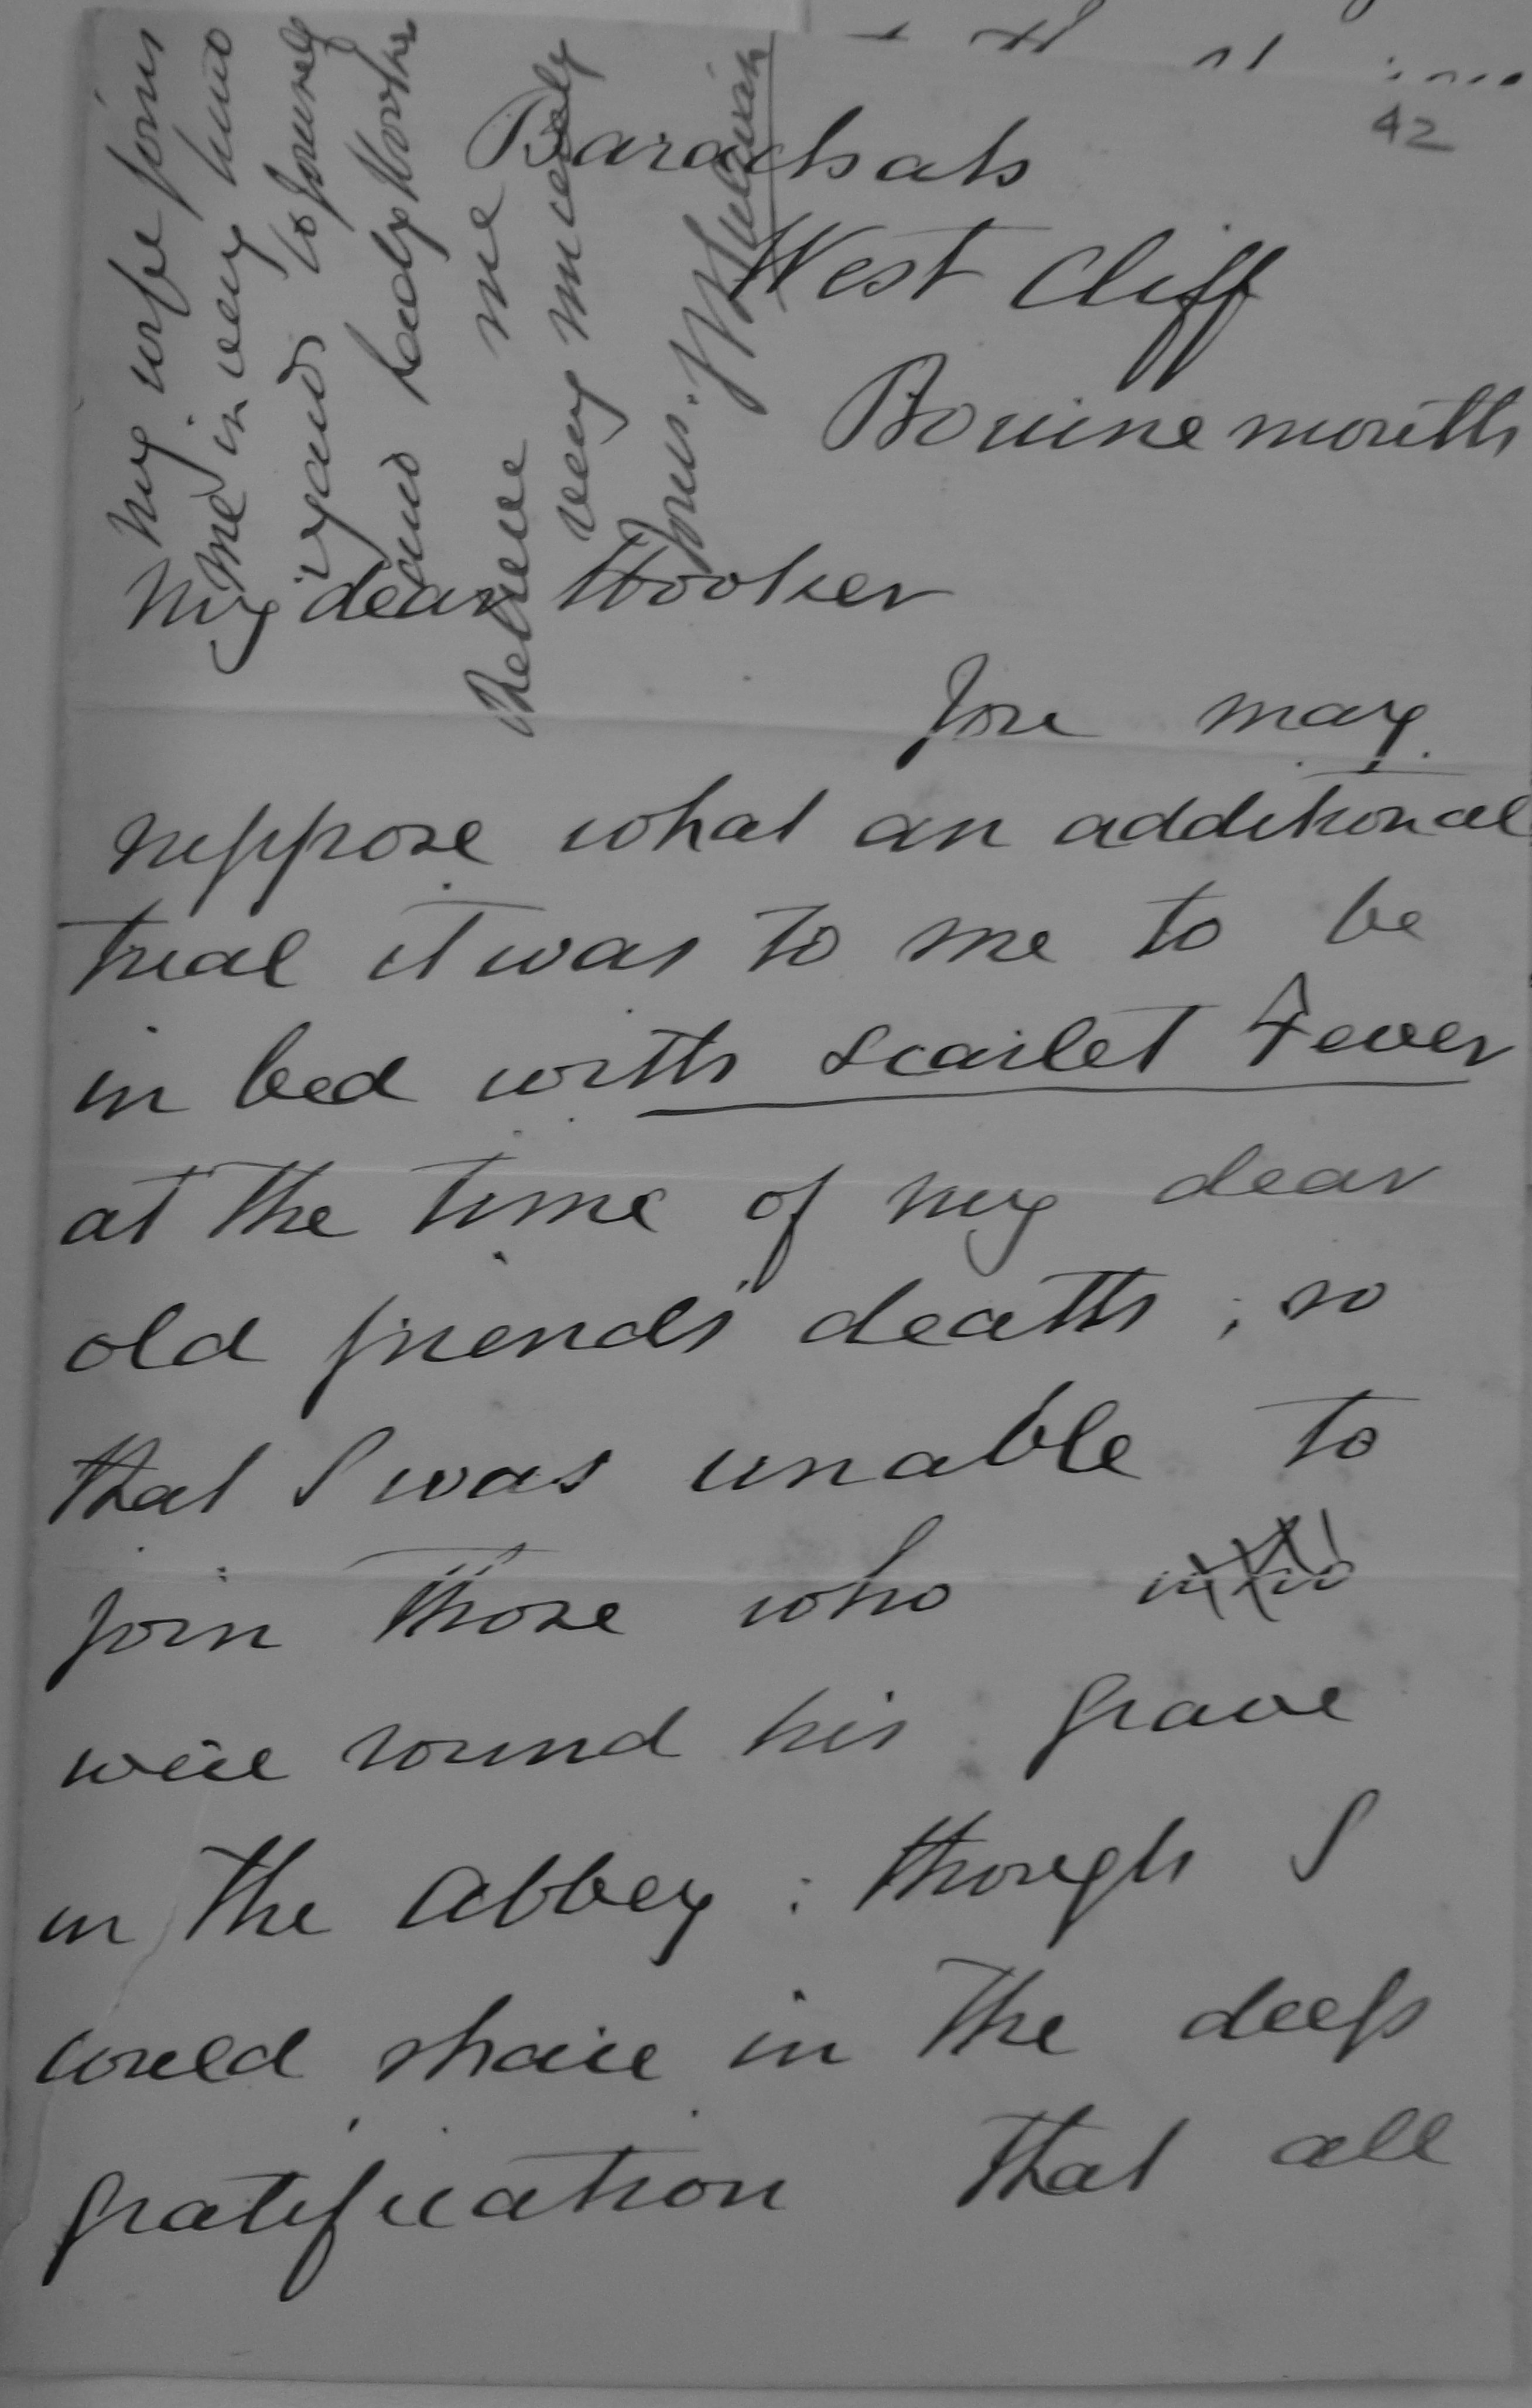 42
Barachah
West Cliff
Bournemouth
My dear Hooker
You may
suppose what an additional
trial it was to me to be
in bed with Scarlet Fever
at the time of my dear
old friend's death, so
that I was unable to
join those who
were round his grave
in the Abbey: though I
could share in the deep
gratification that all
My wife joins
me in very kind
regards to yourself
and Lady Hooker
Believe me
very sincerely
yours. J B